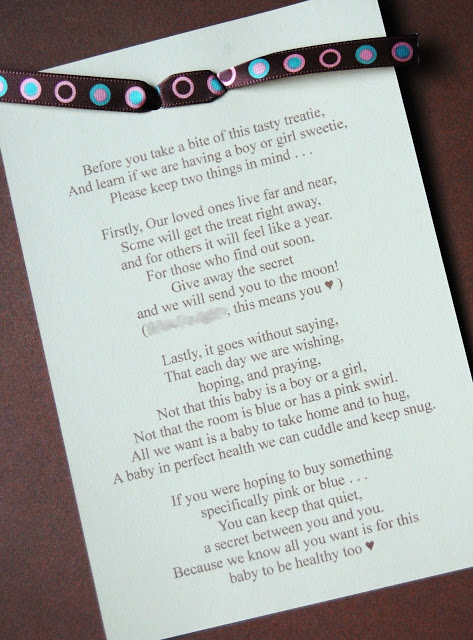 Before you take a bite of this tasty treatie,
And learn if we are having a boy or girl sweetie,
Please keep two things in mind . . .
Firstly, Our loved ones live far and near,
Some will get the treat right away,
and for others it will feel like a year.
For those who find out soon,
Give away the secret
and we will send you to the moon!
( , this means you ♥ )
Lastly, it goes without saying,
That each day we are wishing,
hoping, and praying,
Not that this baby is a boy or a girl,
Not that the room is blue or has a pink swirl.
All we want is a baby to take home and to hug,
A baby in perfect health we can cuddle and keep snug.
If you were hoping to buy something
specifically pink or blue . . .
You can keep that quiet,
a secret between you and you.
Because we know all you want is for this
baby to be healthy too ♥